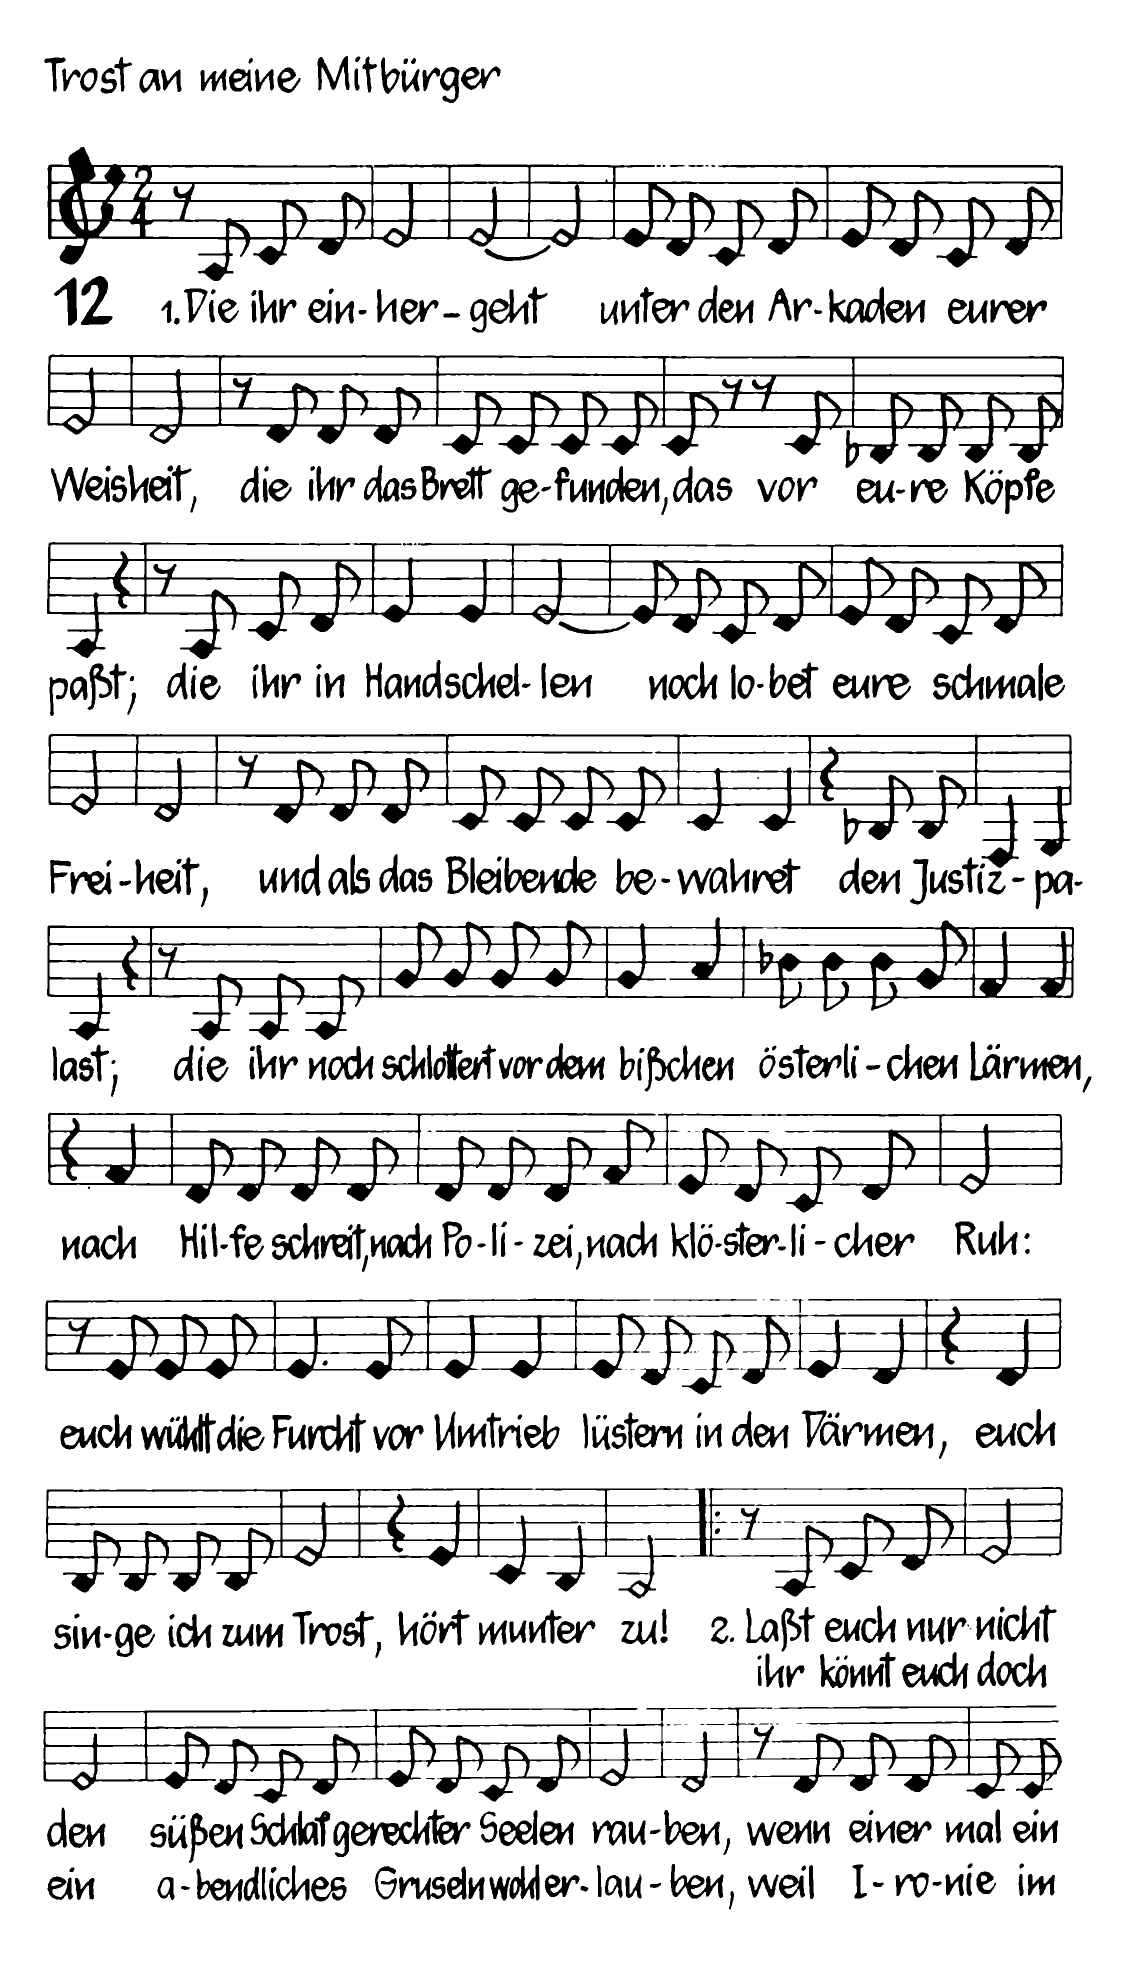 Trost an meine Mitbürger
2
4
12 1. Die ihr ein-her-geht unter den Ar-kaden eurer
Weisheit, die ihr das Brett ge-funden, das vor eu-re Köpfe
paßt; die ihr in Handschel-len noch lo-bet eure schmale
Frei-heit, und als das Bleibende be-wahret den Justiz-pa-
last; die ihr noch schlottert vor dem bißchen österli-chen Lärmen,
nach Hil-fe schreit, nach Po-li-zei, nach klö-ster-li-cher Ruh:
euch wühlt die Furcht vor Umtrieb lüstern in den Därmen, euch
sin-ge ich zum Trost, hört munter zu! 2. Laßt euch nur nicht
ihr könnt euch doch
den süßen Schlaf gerechter Seelen rau-ben, wenn einer mal ein
ein a-bendliches Gruseln wohl er-lau-ben, weil I-ro-nie im